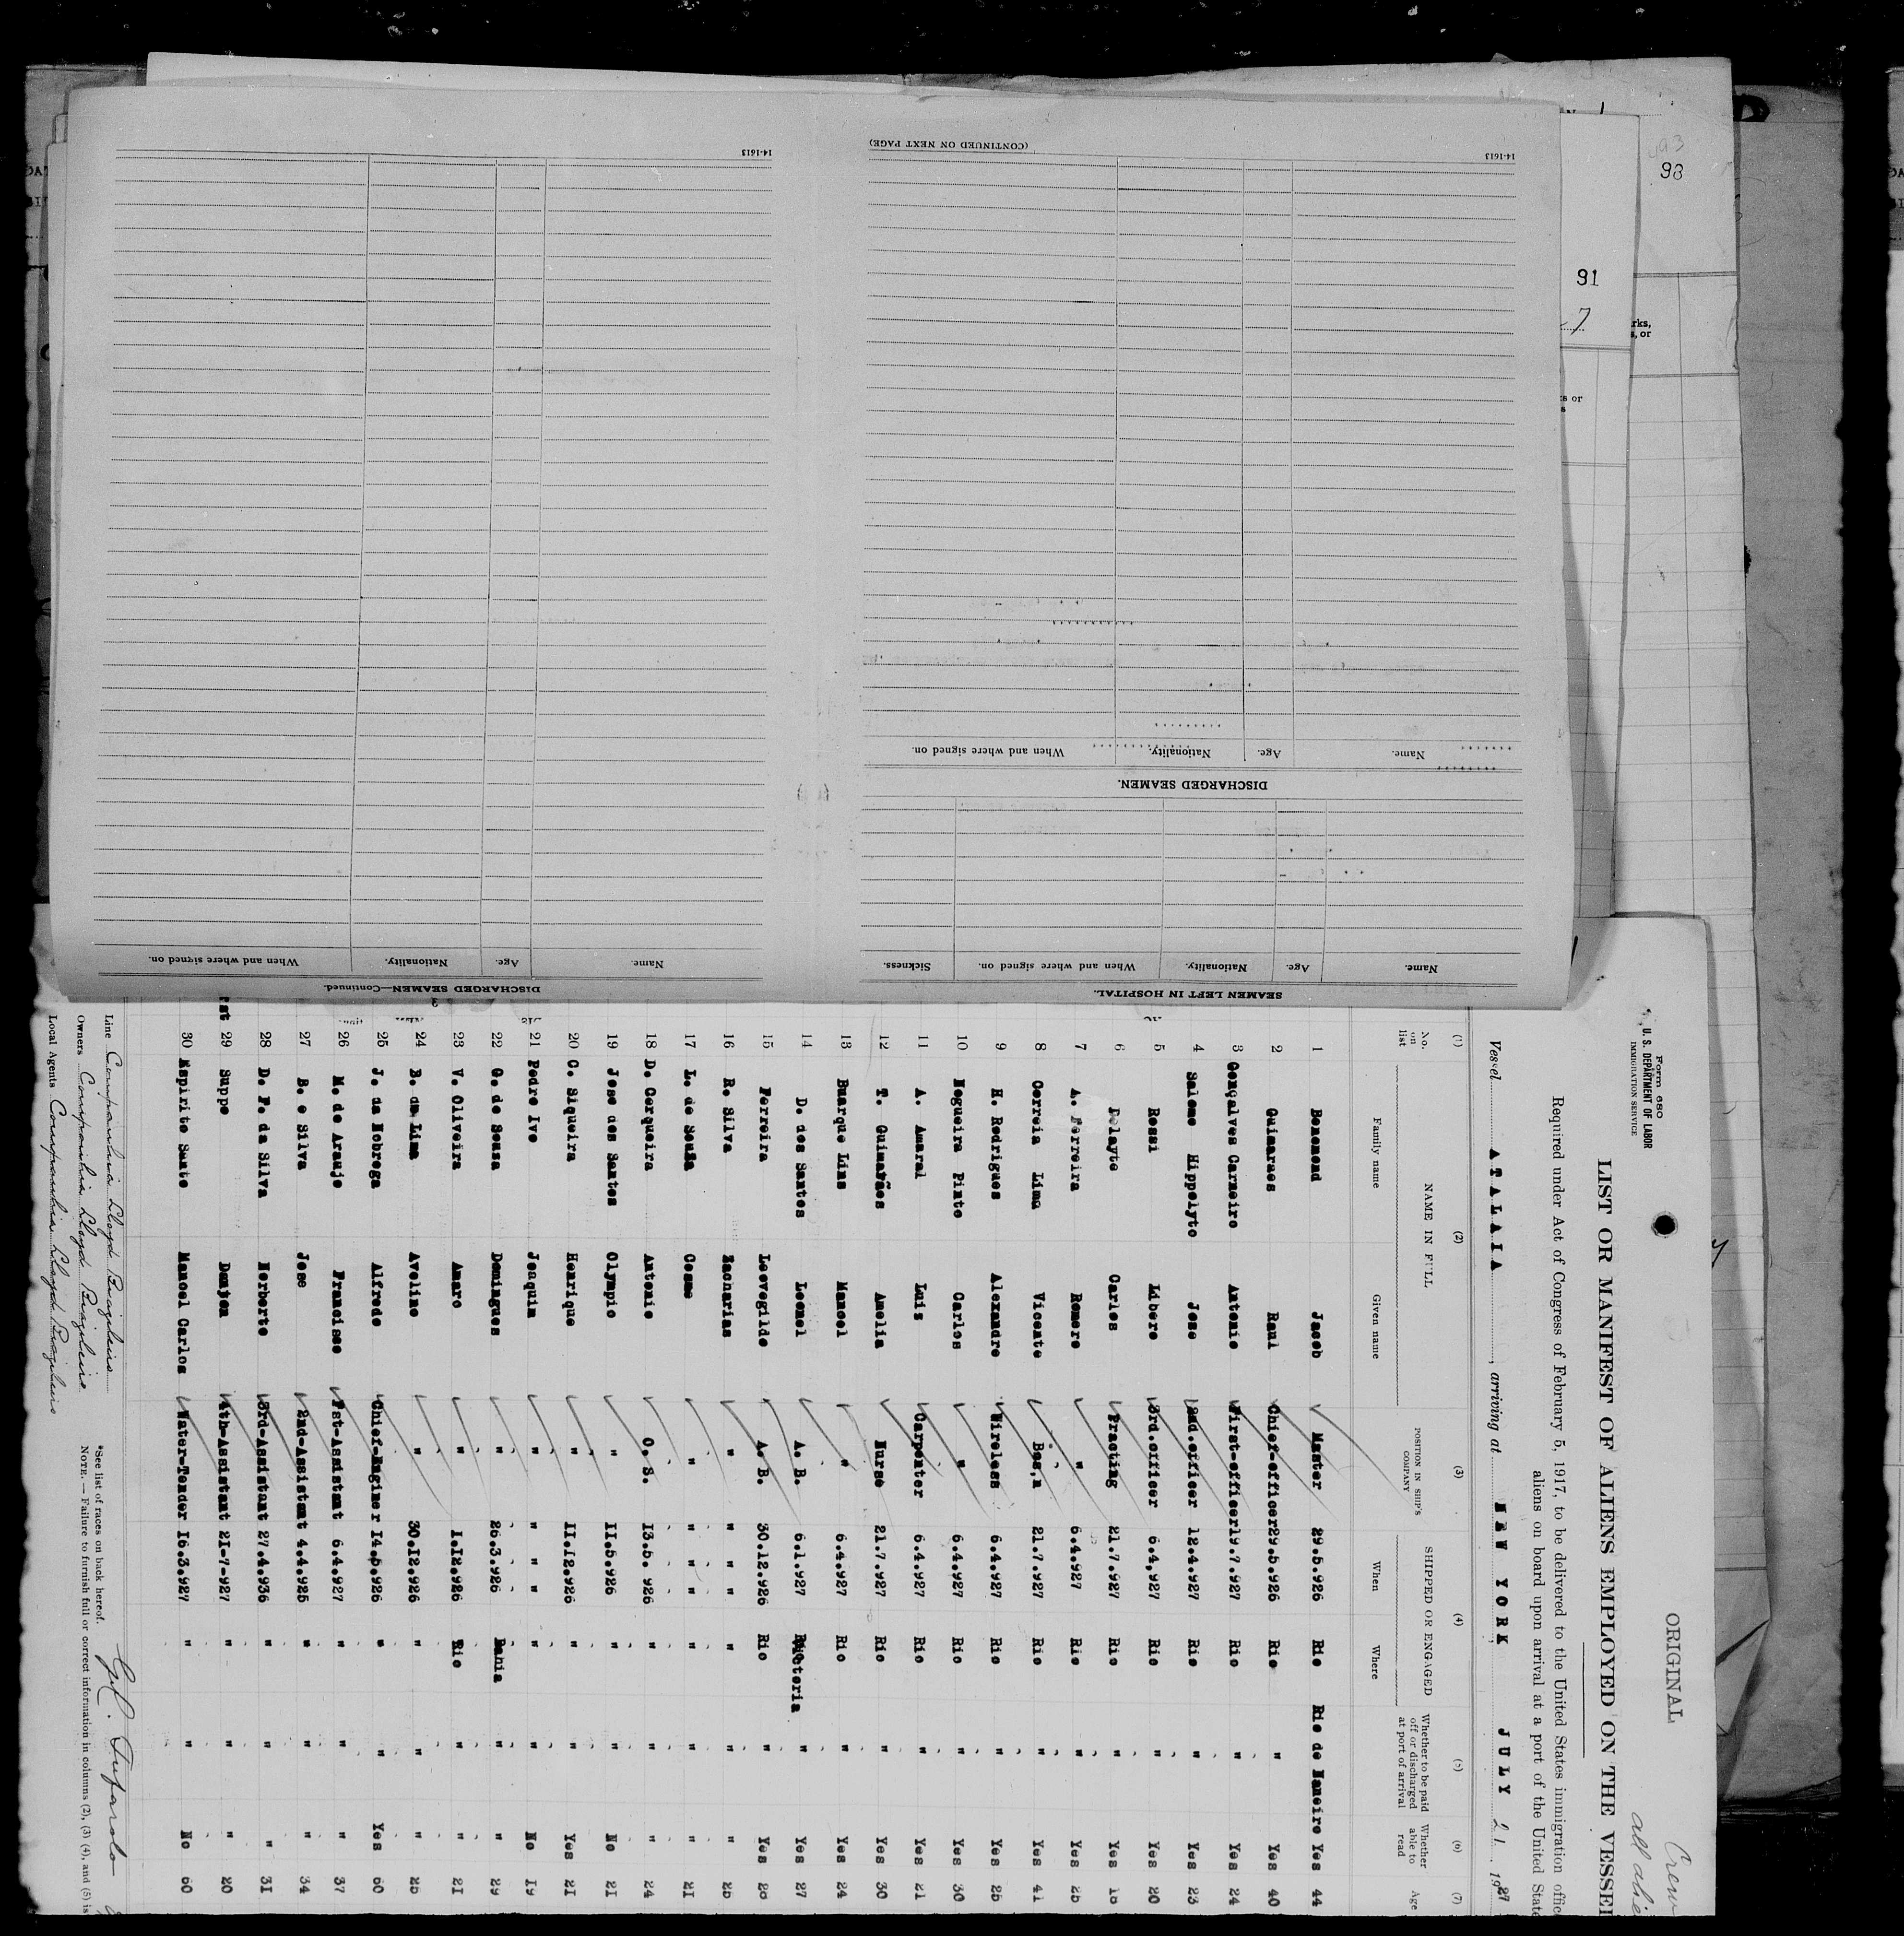 (CONTINUED ON NEXT PAGE)
14-1613
14-1613
98
91
rks,
s, or
s or
SEAMEN LEFT IN HOSPITAL.
Name. Age. Nationality. When and where signed on. Sickness.
DISCHARGED SEAMEN.
Name. Age. Nationality. When and where signed on.
DISCHARGED SEAMEN—Continued.
Name. Age. Nationality. When and where signed on.
Form 680
U. S. DEPARTMENT OF LABOR
IMMIGRATION SERVICE
ORIGINAL
Crew
LIST OR MANIFEST OF ALIENS EMPLOYED ON THE VESSEL
Required under Act of Congress of February 5, 1917, to be delivered to the United States immigration offic
aliens on board upon arrival at a port of the United State
Vessel ATALAIA, arriving at NEW YORK JULY 21, 1927
(1) (2) (3) (4) (5) (6) (7)
No. on list NAME IN FULL Family name Given name POSITION IN SHIP'S COMPANY SHIPPED OR ENGAGED When Where Whether to be paid off or discharged at port of arrival Whether able to read Age
1 Benemond Jacob Master 29.5.926 Rio Rio de Janeiro Yes 44
2 Guimaraes Raul Chief-officer 29.5.926 Rio " Yes 40
3 Gonçalves Carneiro Antonio First-officer 19.7.927 Rio " Yes 24
4 Saleme Hippolyto Jose 2nd.officer 12.4.927 Rio " Yes 23
5 Rossi Libero 3rd.officer 6.4,927 Rio " Yes 20
6 Pelayte Carlos Practing 21.7.927 Rio " Yes 18
7 A. Ferreira Romero " 6.4.927 Rio " Yes 25
8 Correia Lima Vicente Bos,n 21.7.927 Rio " Yes 41
9 H. Rodrigues Alexandre Wireless 6.4.927 Rio " Yes 25
10 Nogueira Pinto Carlos " 6.4.927 Rio " Yes 30
11 A. Amaral Luis Carpenter 6.4.927 Rio " Yes 21
12 T. Guimarães Amelia Nurse 21.7.927 Rio " Yes 30
13 Buarque Lins Manoel " 6.4.927 Rio " Yes 24
14 D. dos Santos Leonel A. B. 6.1.927 Victoria " Yes 27
15 Ferreira Leovegildo A. B. 30.12.926 Rio " Yes 28
16 R. Silva Zacharias " " " " " 25
17 L. de Souza Cosme " " " " " 21
18 D. Cerqueira Antonio O. S. 13.5.926 " " " 24
19 Jose dos Santos Olympio " 11.5.926 " " No 21
20 C. Siqueira Henrique " 11.12.926 " " Yes 21
21 Pedro Ivo Joaquim " " " " No 19
22 G. de Souza Domingues " 26.3.926 Bahia " " 29
23 V. Oliveira Amaro " 1.12.926 Rio " " 21
24 B. de Lima Avelino " 30.12.926 " " " 25
25 J. da Nobrega Alfredo Chief-Engineer 14.5.926 " " Yes 60
26 M. de Araujo Francisco 1st-Assistant 6.4.927 " " " 37
27 B. e Silva Jose 2nd-Assistant 4.4.925 " " " 34
28 D. F. da Silva Herberto 3rd-Assistant 27.4.936 " " " 31
29 Suppo Donjon 4th-Assistant 21-7-927 " " " 20
30 Espirito Santo Manoel Carlos Water-Tender 16.3.927 " " No 60
Line Companhia Lloyd Brazileiro
Owners Companhia Lloyd Brazileiro
Local Agents Companhia Lloyd Brazileiro
*See list of races on back hereof.
NOTE.—Failure to furnish full or correct information in columns (2), (3) (4), and (5) is